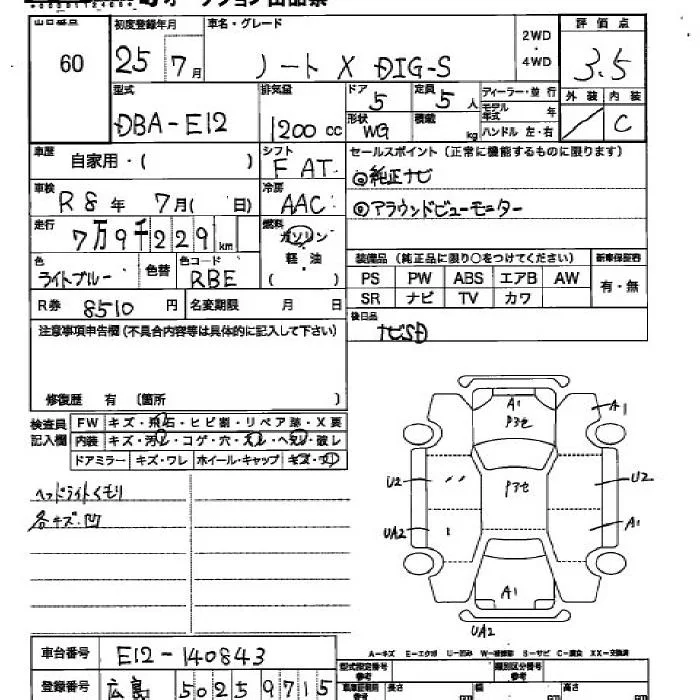 出品番号 初度登録年月 車名・グレード 2WD ・ 4WD 評価点
60 25年 7月 ノート X DIG-S 3.5
外装 内装
／ C
型式 排気量 ドア 定員 ディーラー・並行
DBA-E12 1200cc 5 5人 モデル年式 年
形状 積載 ハンドル 左・右
WG kg
車歴 自家用・( ) シフト F AT
セールスポイント（正常に機能するものに限ります）
◎純正ナビ
◎アラウンドビューモニター
車検 R8年 7月( 日) 冷房 AAC
走行 7万9千229km 燃料 ガソリン 軽油 ( )
色 ライトブルー 色替 色コード RBE
装備品（純正品に限り○をつけてください） 新車保証書
PS PW ABS エアB AW 有・無
SR ナビ TV カワ
R券 8510円 名変期限 月 日
後日品
ナビSD
注意事項申告欄（不具合内容等は具体的に記入して下さい）
修復歴 有 〔箇所 〕
検査員記入欄 FW キズ・飛石・ヒビ割・リペア跡・X要
内装 キズ・汚れ・コゲ・穴・スレ・ヘタレ・破レ
ドアミラー キズ・ワレ ホイール・キャップ キズ・ワレ
ヘッドライトくもり
各キズ・凹
A1
A1
U2
U2
UA2
A1
A1
UA2
A=キズ E=エクボ U=凹み W=補修跡 S=サビ C=腐食 XX=交換済
車台番号 E12-140843
型式指定番号 参考 類別区分番号 参考
登録番号 広島 502 59715
長さ cm 幅 cm 高さ cm